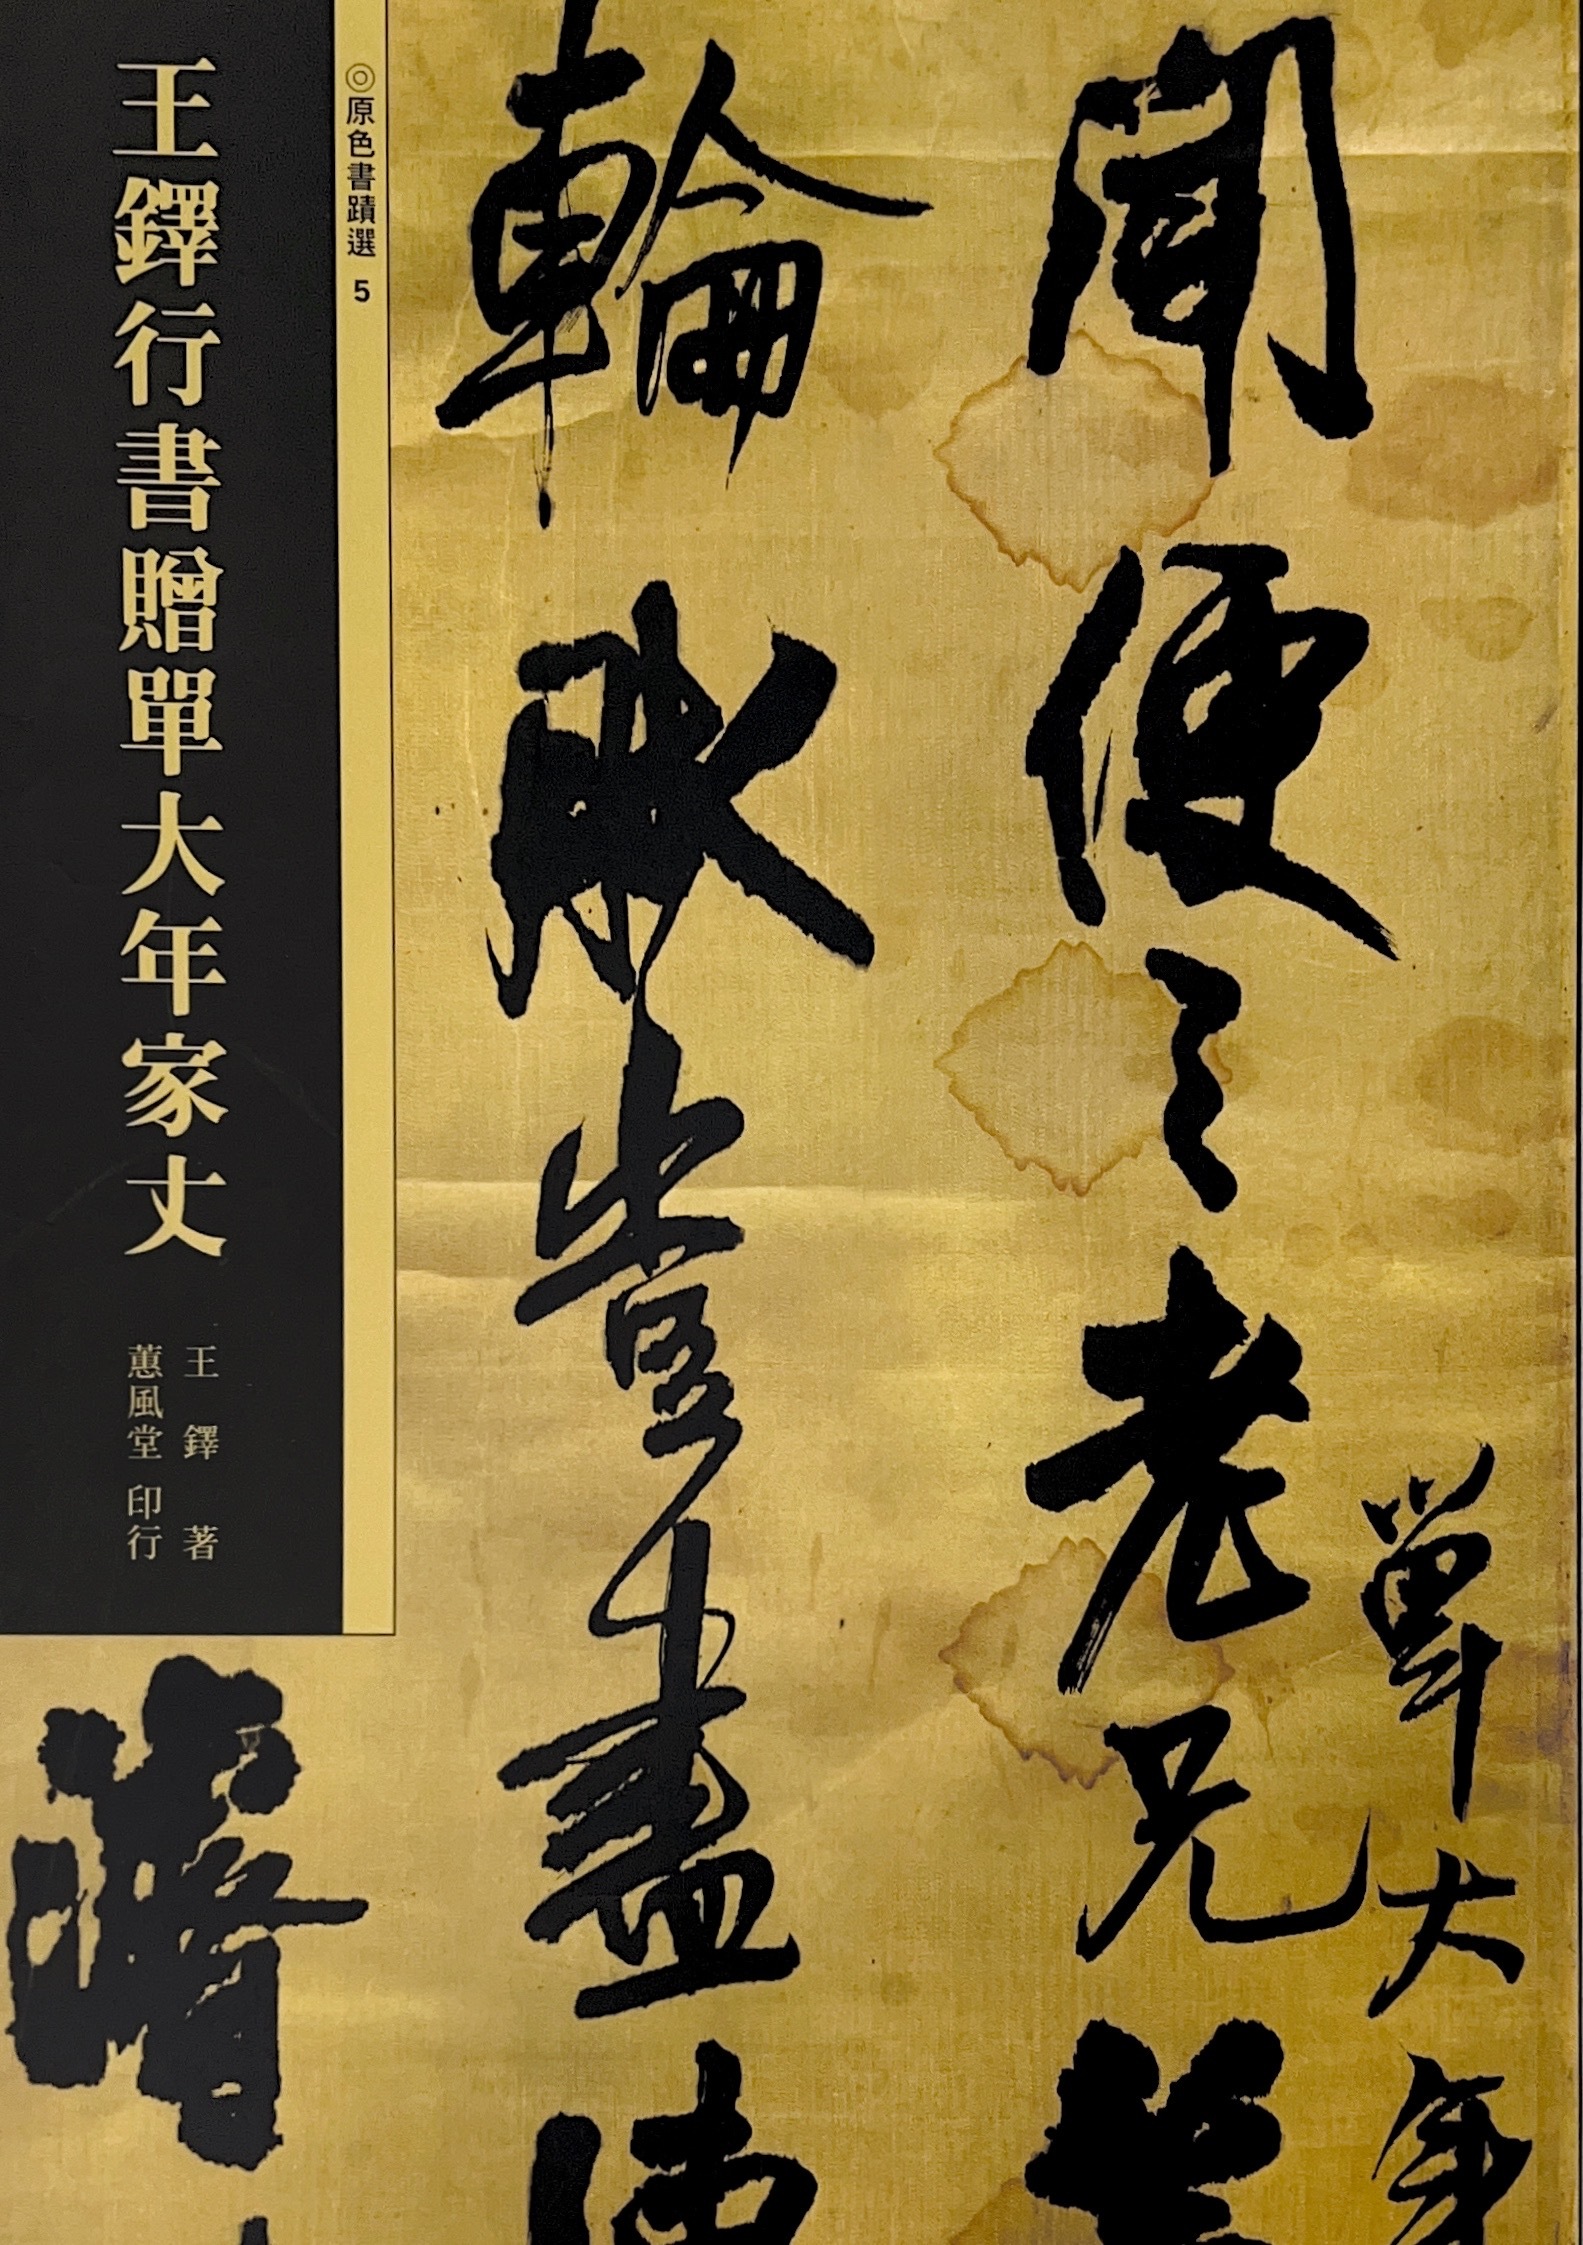 單大年
聞便〻老兄
輪
盡
◎原色書蹟選 5
王鐸行書贈單大年家丈
王鐸 著
蕙風堂 印行